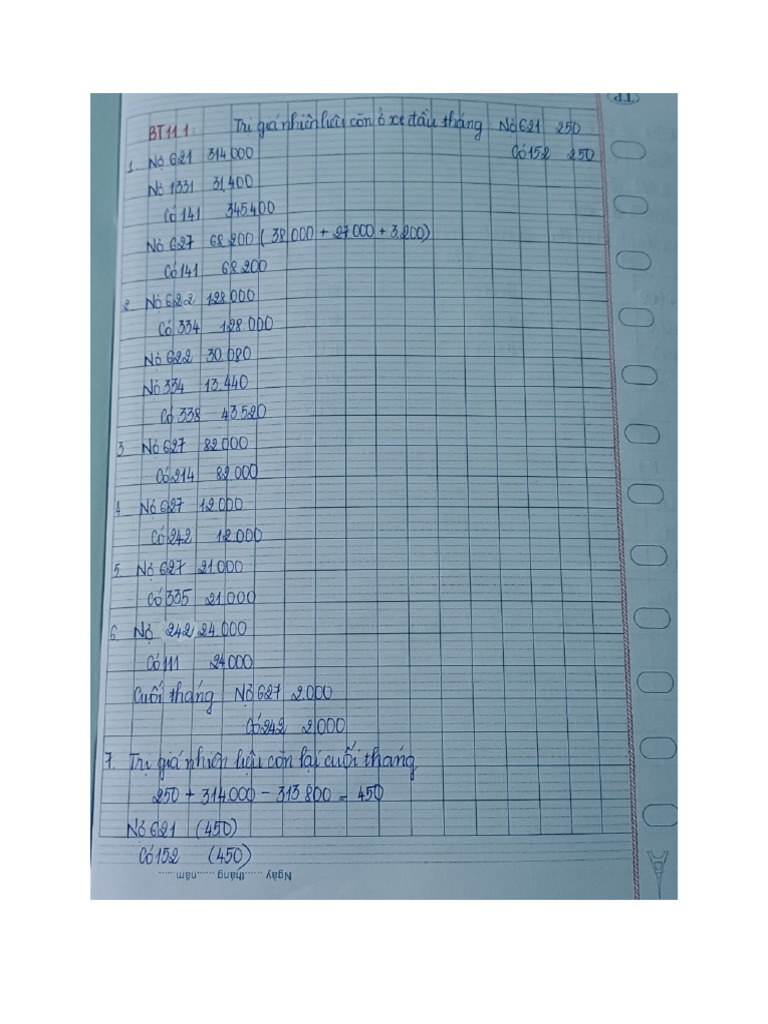 BT11.1: Trị giá nhiên liệu còn ở xe đầu tháng Nợ 621 250
Có 152 250
1. Nợ 621 314.000
Nợ 1331 31.400
Có 141 345.400
Nợ 627 68.200 (38.000 + 27.000 + 3.200)
Có 141 68.200
2. Nợ 622 128.000
Có 334 128.000
Nợ 622 30.080
Nợ 334 13.440
Có 338 43.520
3 Nợ 627 82.000
Có 214 82.000
4. Nợ 627 12.000
Có 242 12.000
5. Nợ 627 21.000
Có 335 21.000
6. Nợ 242 24.000
Có 111 24.000
Cuối tháng Nợ 627 2.000
Có 242 2.000
7. Trị giá nhiên liệu còn lại cuối tháng
250 + 314.000 - 313.800 = 450
Nợ 621 (450)
Có 152 (450)
Ngày ...... tháng ...... năm ......